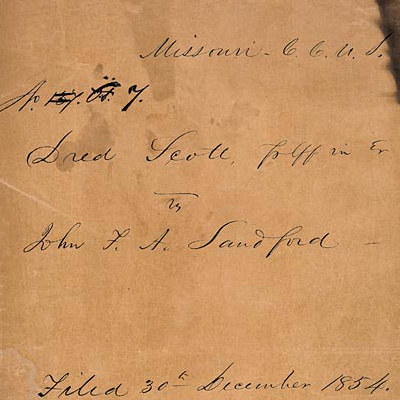 Missouri - C. C. U. S.
No. 7.
Dred Scott, plff in Er
vs
John F. A. Sandford -
Filed 30th December 1854.